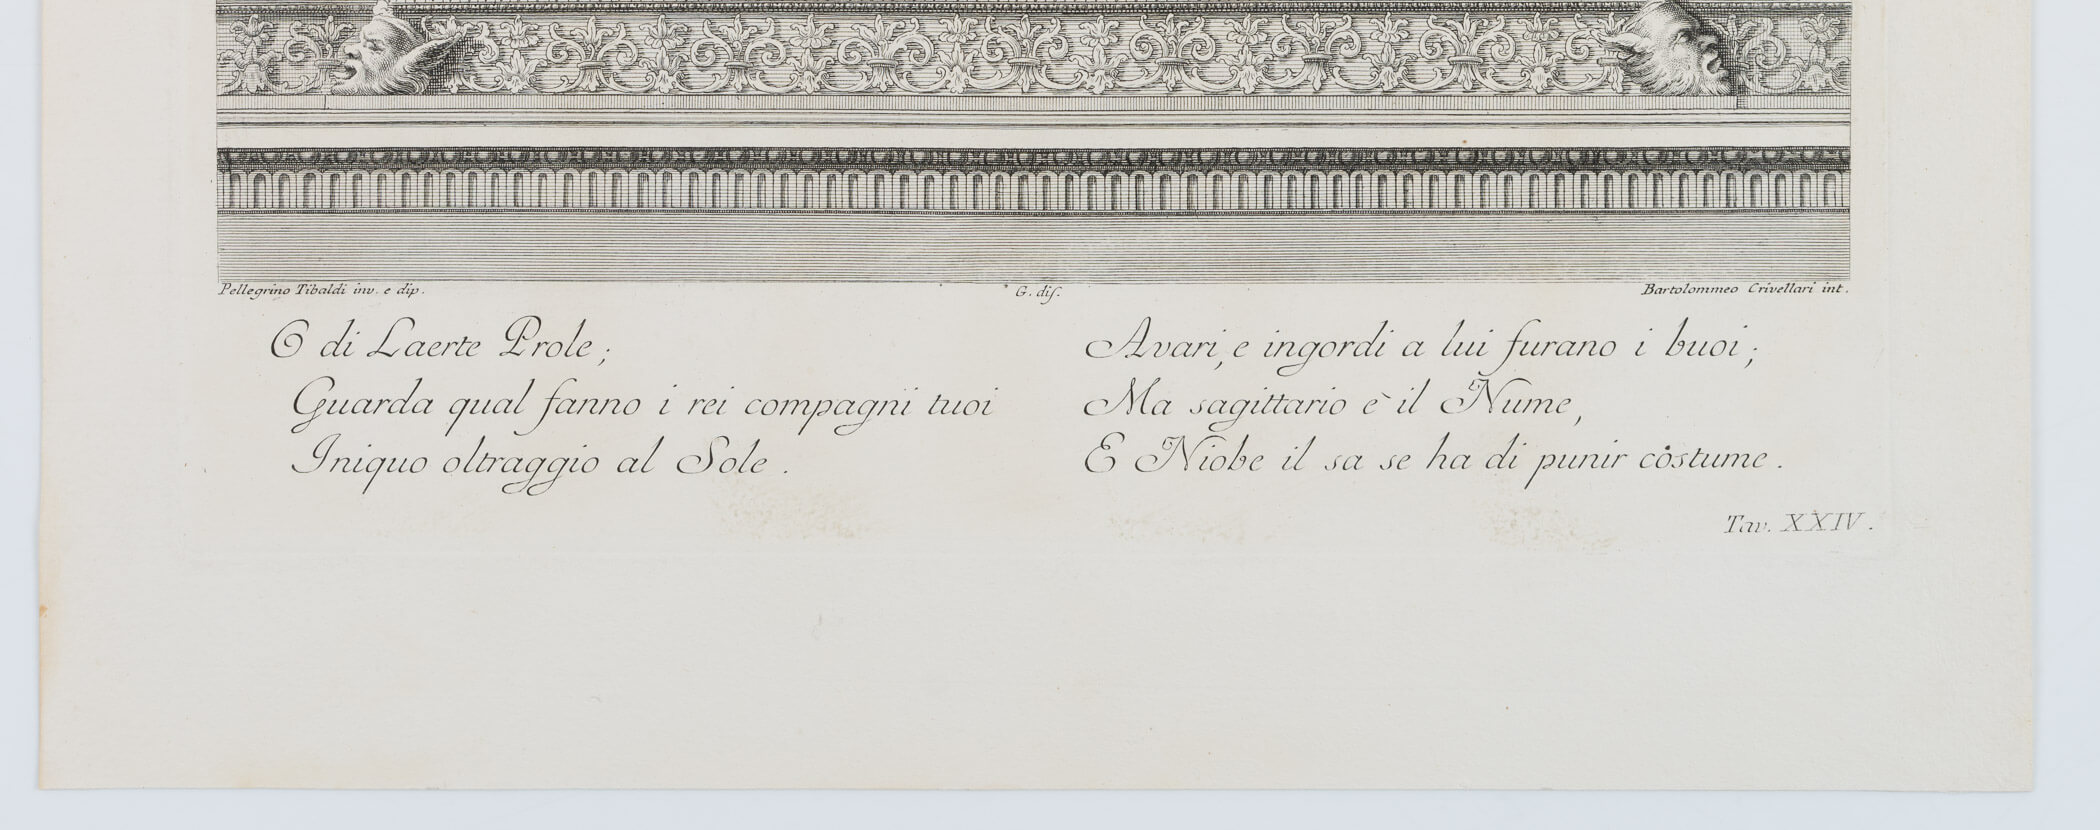 Pellegrino Tibaldi inv. e dip.
G. dis.
Bartolommeo Crivellari int.
O di Laerte Prole;
Guarda qual fanno i rei compagni tuoi
Iniquo oltraggio al Sole.
Avari, e ingordi a lui furano i buoi;
Ma sagittario è il Nume,
E Niobe il sa se ha di punir costume.
Tav. XXIV.